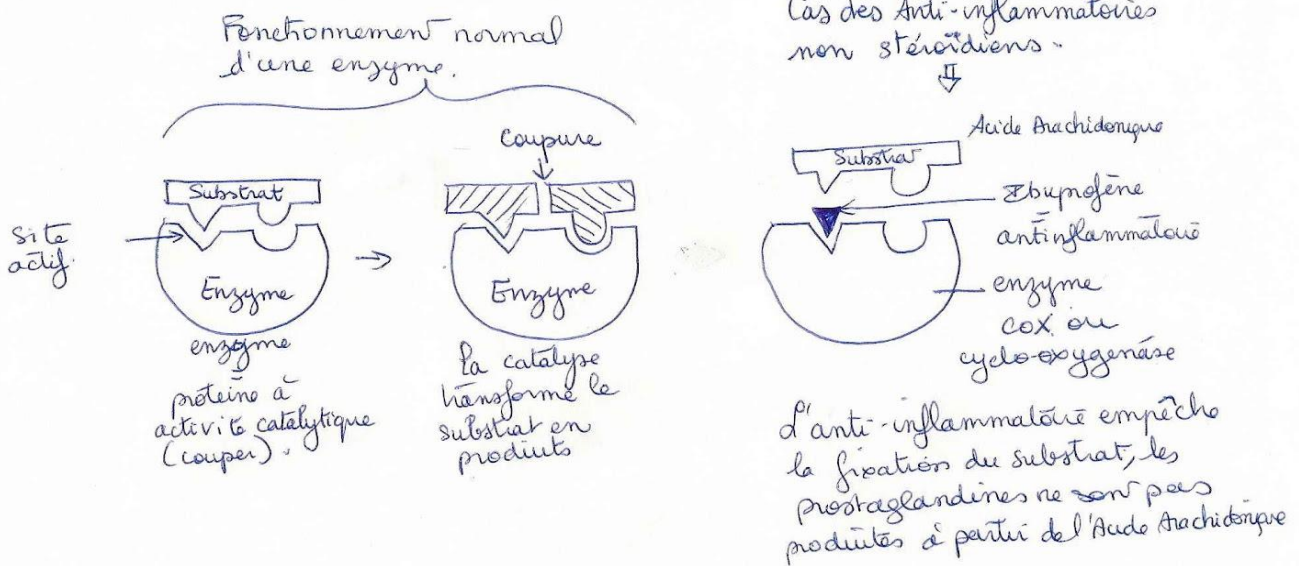 Fonctionnement normal
d'une enzyme.
Coupure
Substrat
Site
actif.
Enzyme
enzyme
protéine à
activité catalytique
(couper).
Enzyme
la catalyse
transforme le
substrat en
produits
Cas des Anti-inflammatoires
non stéroïdiens.
Acide Arachidonique
Substrat
Ibuprofène
=
antiinflammatoire
enzyme
cox ou
cyclo-oxygenase
L'anti-inflammatoire empêche
la fixation du substrat, les
prostaglandines ne sont pas
produites à partir de l'Acide Arachidonique